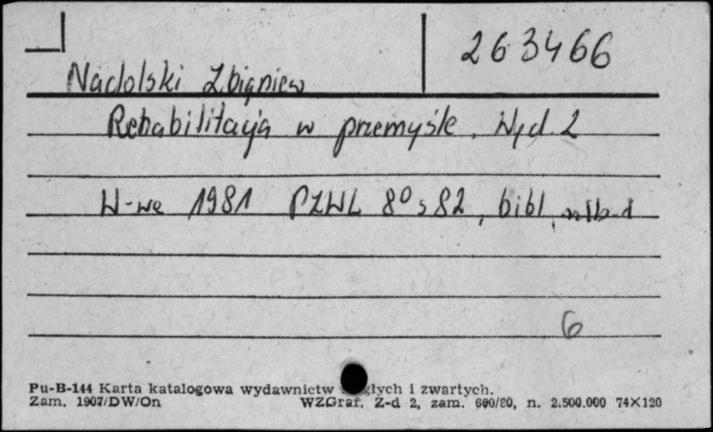 263466
Nadolski Zbigniew
Rehabilitacja w przemyśle. Wyd. 2
W-wa 1981 PZWL 8° s 82, bibl,
6
Pu-B-144 Karta katalogowa wydawnictw ciągłych i zwartych.
Zam. 1907/DW/On WZGraf. Z-d 2, zam. 600/80, n. 2.500.000 74×120